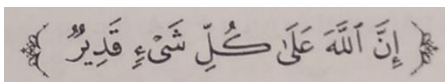 ﴿ إِنَّ ٱللَّهَ عَلَىٰ كُلِّ شَىْءٍ قَدِيرٌ ﴾